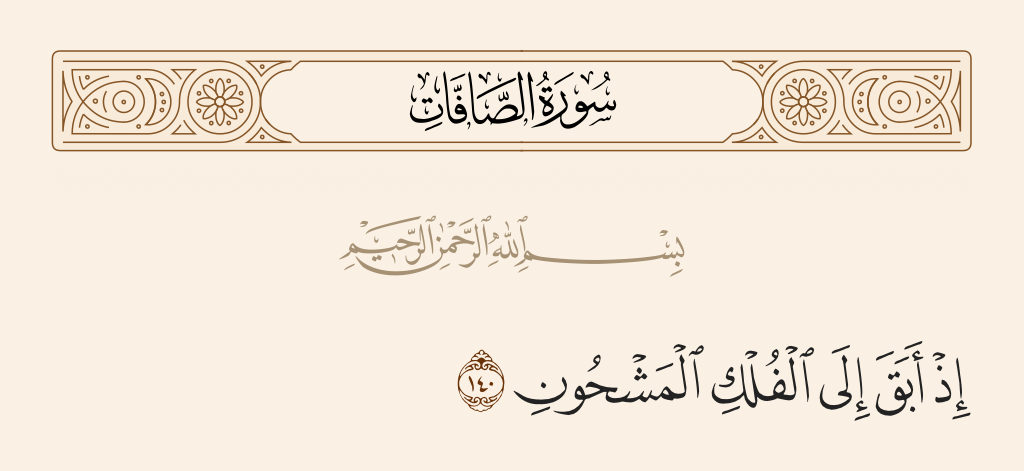 سُورَةُ الصَّافَّاتِ
بِسْمِ ٱللَّهِ ٱلرَّحْمَٰنِ ٱلرَّحِيمِ
إِذْ أَبَقَ إِلَى ٱلْفُلْكِ ٱلْمَشْحُونِ ١٤٠